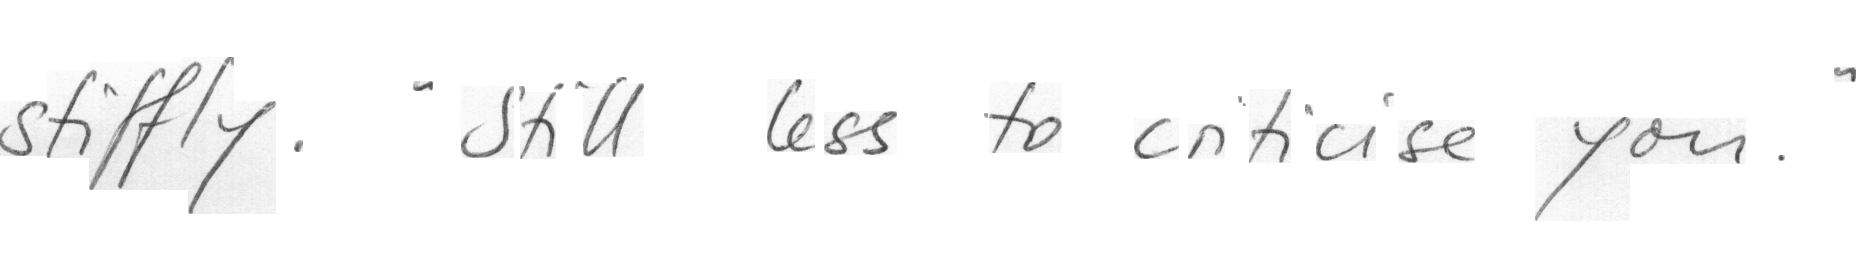 stiffly. "Still less to criticise you."